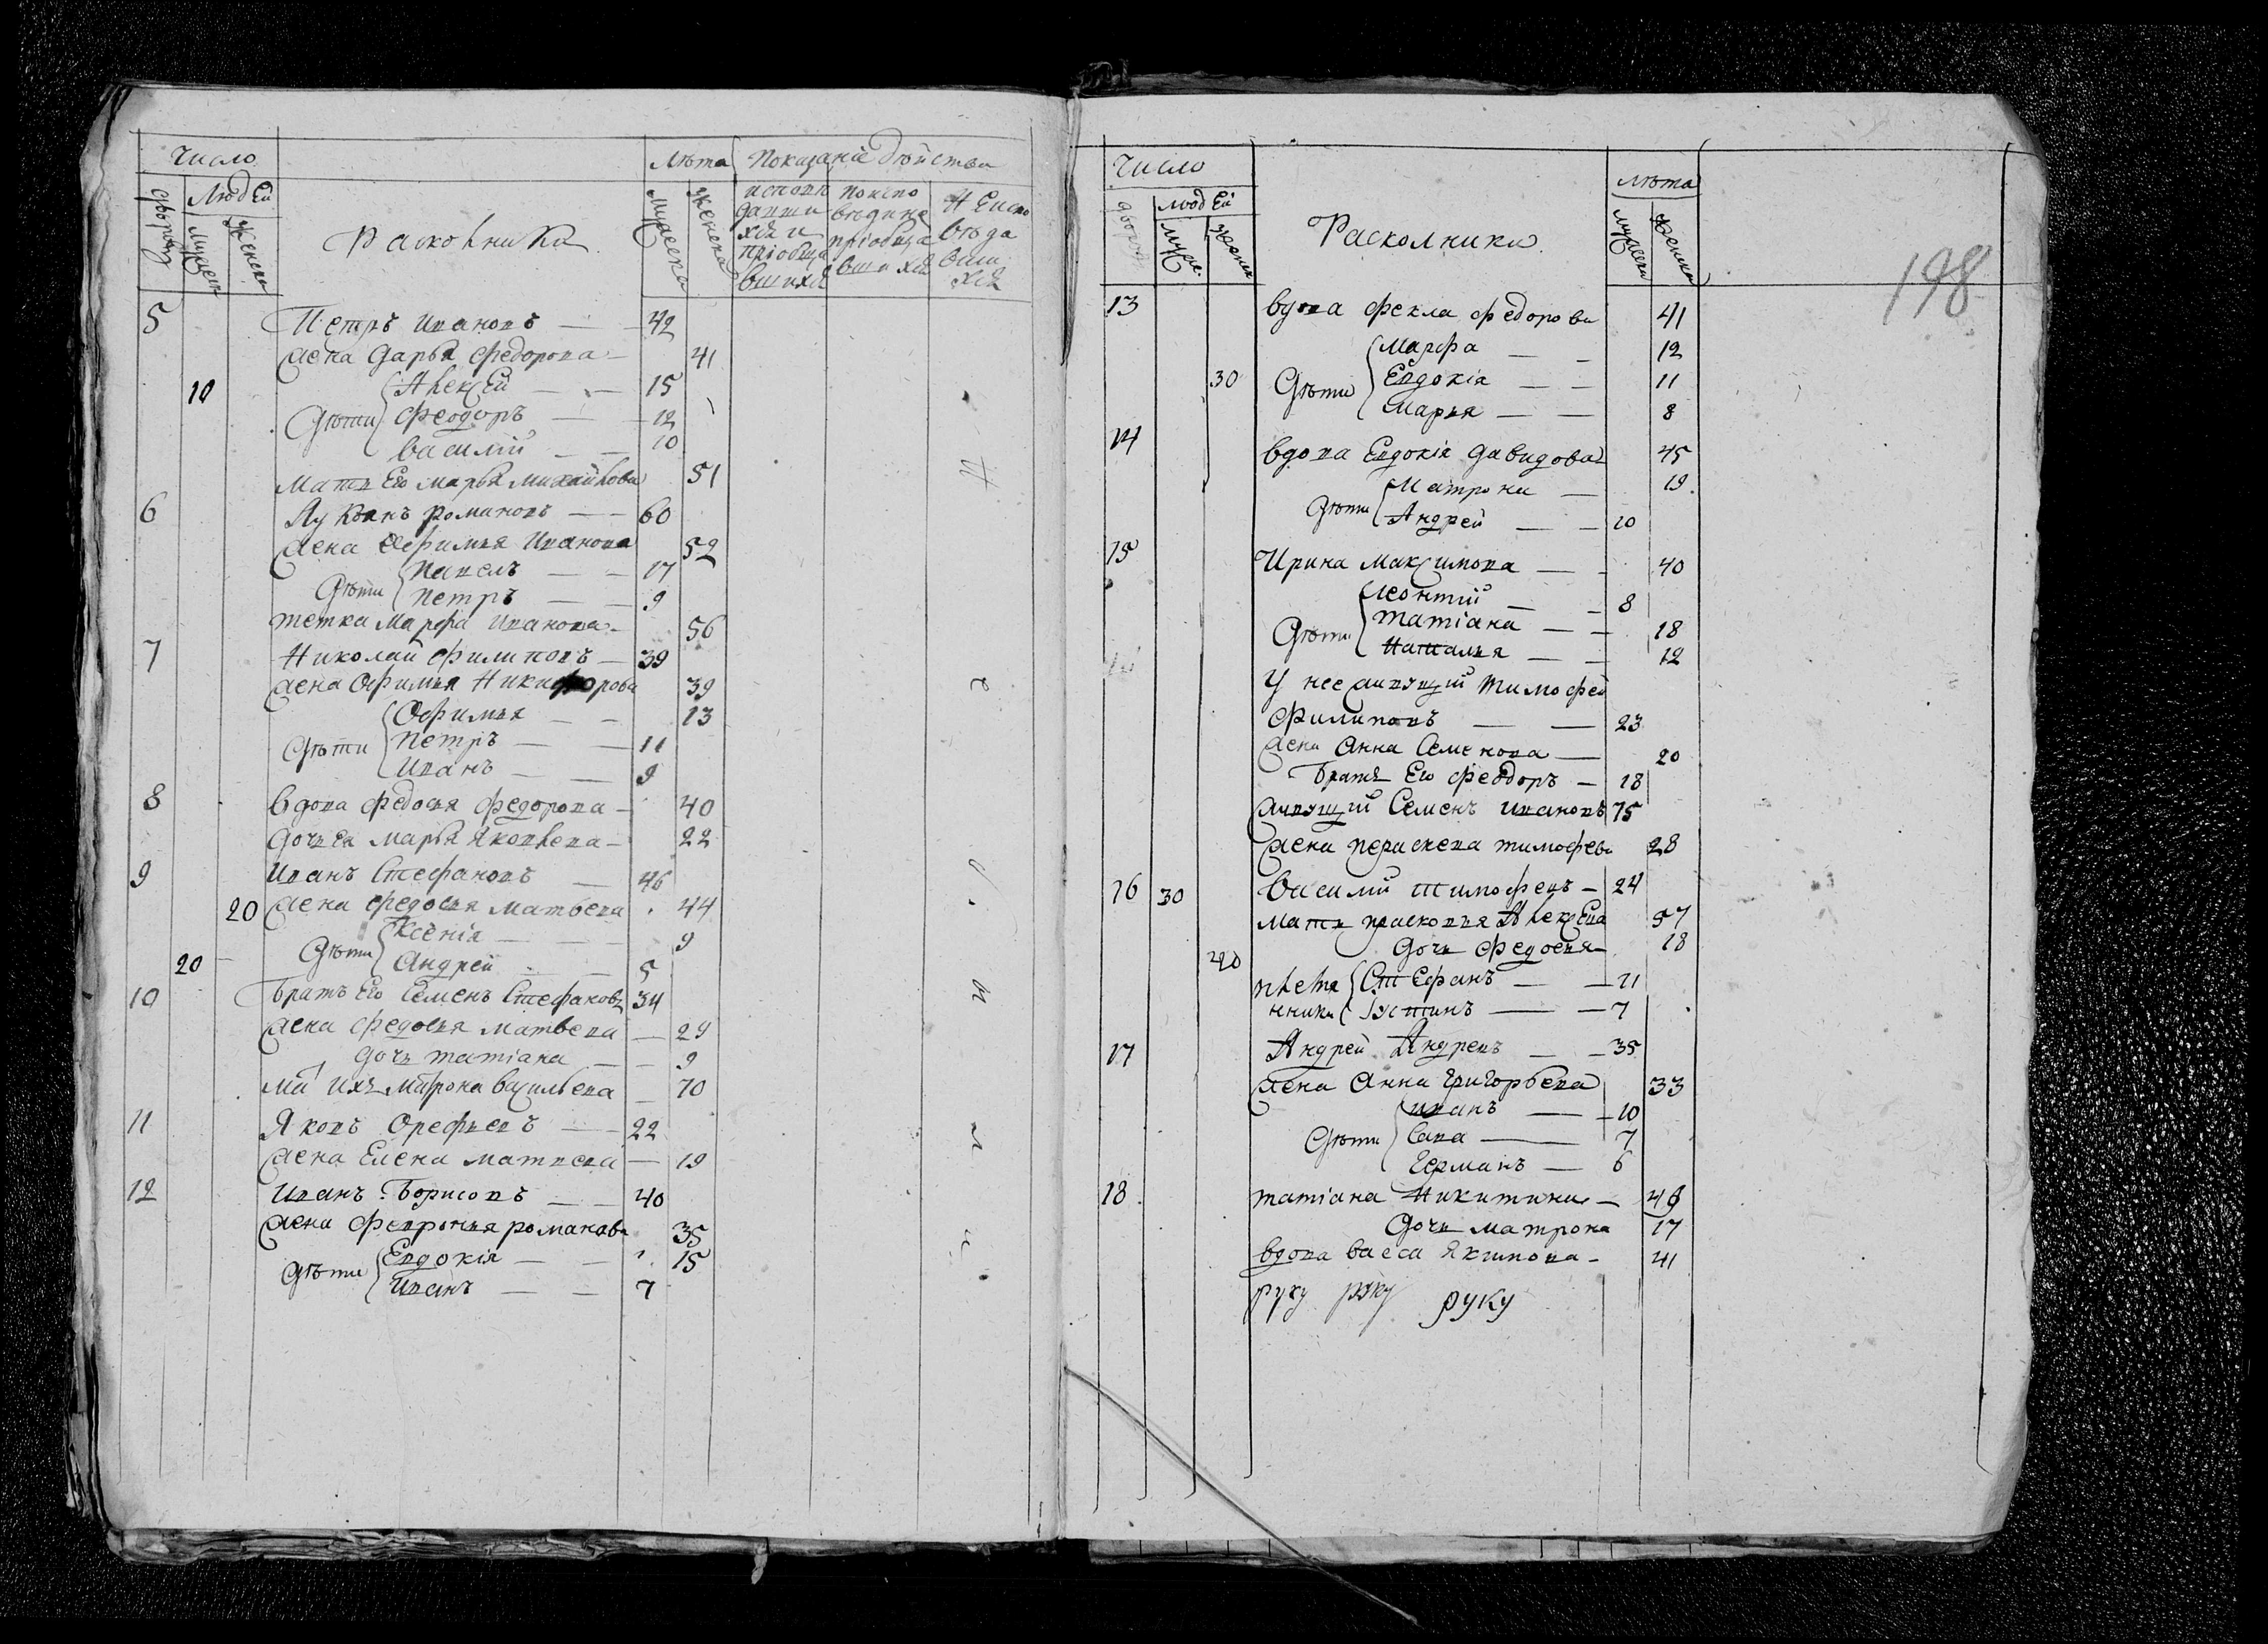 Число
Лѣта Показаніе дѣйства
дворовъ
Людей
Мужеска
Женска
Расколники
Мужеска
Женска
исповѣ
давши
хся и
пріобща
вшихся
по испо
вѣди не
пріобща
вшихся
Неиспо
вѣда
вши
хся
5 Петръ Ивановъ 42
жена Дарья Федорова 41
10 Алексей 15
дѣти Феодоръ 12
василій 10
мать Его марья михайлова 51
6 Лукьянъ романовъ 60
жена Ефимья Иванова 52
Павелъ 17
дѣти петръ 9
тетка Марфа Иванова 56
7 Николай филиповъ 39
жена Офимья Никифорова 39
Офимья 13
дѣти Петръ 11
Иванъ 9
8 вдова федосья федорова 40
дочь Ея марья Яковлева 22
9 Иванъ Стефановъ 46
20 жена федосья матвева 44
Ксенія 9
20 дѣти Андрей 5
10 братъ Его Семенъ Стефановъ 34
жена федосья матвева 29
дочь татіана 9
мать ихъ матрона васильева 70
11 Яковъ орефьевъ 22
жена Елена матвеева 19
12 Иванъ Борисовъ 40
жена февронья романова 35
дѣти Евдокія 15
Иванъ 7
Число
Лѣта
дворовъ
людей
муже.
женск
Расколники.
мужеска
женска
198
13 вдова фекла федорова 41
Марфа 12
30 дѣти Евдокія 11
Марья 8
14 вдова Евдокія давидова 45
Матрона 19
дѣти Андрей 10
15 Ирина максимова 40
леонтій 8
дѣти татіана 18
наталья 12
У нее живущій тимофей
филиповъ 23
жена анна Семенова 20
братъ Его феодоръ 18
живущій Семенъ ивановъ 75
жена параскева тимофева 28
16 30 василій тимофевъ 24
мать прасковья Алексева 57
дочь федосья 18
20
племя Стефанъ 11
нники Іустинъ 7
17 Андрей Андревъ 35
жена анна григорьева 33
иванъ 10
дѣти Сава 7
Германъ 6
18 татіана Никитина 48
дочь матрона 17
вдова васса якимова 41
руку руку руку